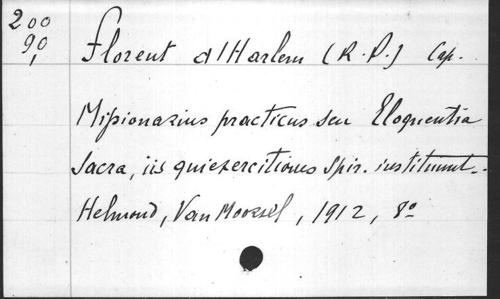 200
90
Florent d'Harlem (R.P.) Cap.
Missionarius practicus seu Eloquentia
Sacra, iis qui exercitiones Spir. instituunt.
Helmond, Van Moorsel, 1912, 8°